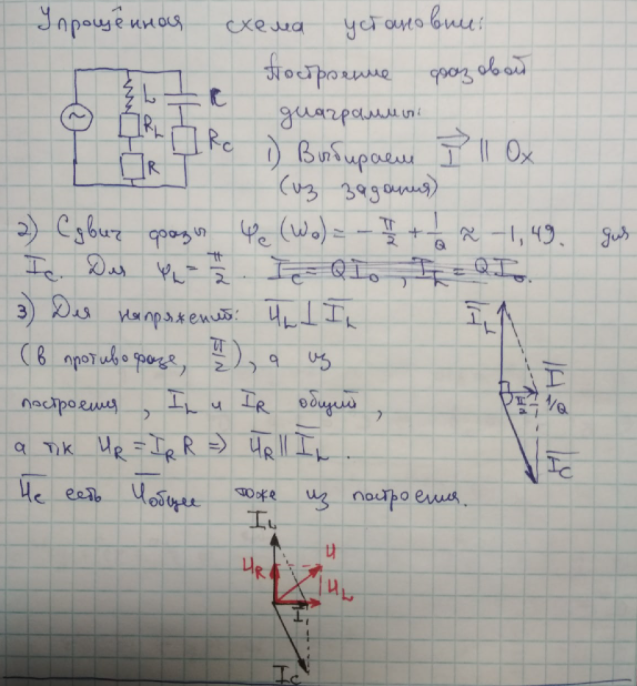 Упрощённая схема установки:
L
C
R_L
R_C
R
Построение фазовой
диаграммы:
1) Выбираем I⃗ || Ox
(из задания)
2) Сдвиг фазы φ_C(ω_0) = -π/2 + 1/Q ≈ -1,49. для
I_C. Для φ_L = π/2. I_C = QI_0, I_L = QI_0.
3) Для напряжений: U_L ⊥ I_L
(в противофазе, π/2), а из
построения, I_L и I_R общий,
а т,к U_R = I_R R => U_R || I_L.
U_C есть U_общее тоже из построения.
I_L
I
π/2 1/Q
I_C
I_L
U_R
U
U_L
I
I_C